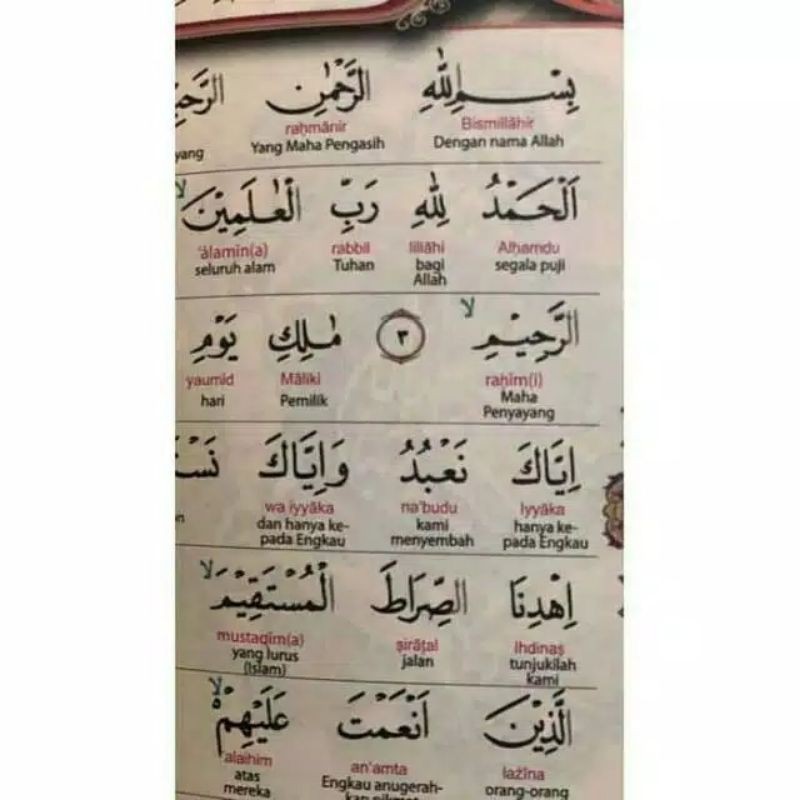 بِسْمِ اللّٰهِ الرَّحْمٰنِ
Bismillāhir raḥmānir
Dengan nama Allah Yang Maha Pengasih yang
اَلْحَمْدُ لِلّٰهِ رَبِّ الْعٰلَمِيْنَ ۙ
Alḥamdu lillāhi rabbil 'ālamīn(a)
segala puji bagi Allah Tuhan seluruh alam
الرَّحِيْمِ ۙ ٣ مٰلِكِ يَوْمِ
raḥīm(i) Māliki yaumid
Maha Penyayang Pemilik hari
اِيَّاكَ نَعْبُدُ وَاِيَّاكَ
Iyyāka na'budu wa iyyāka
hanya kepada Engkau kami menyembah dan hanya kepada Engkau
اِهْدِنَا الصِّرَاطَ الْمُسْتَقِيْمَ ۙ
Ihdinaṣ ṣirāṭal mustaqīm(a)
tunjukilah kami jalan yang lurus (Islam)
الَّذِيْنَ اَنْعَمْتَ عَلَيْهِمْ ۙ
lażīna an'amta 'alaihim
orang-orang Engkau anugerah- atas mereka